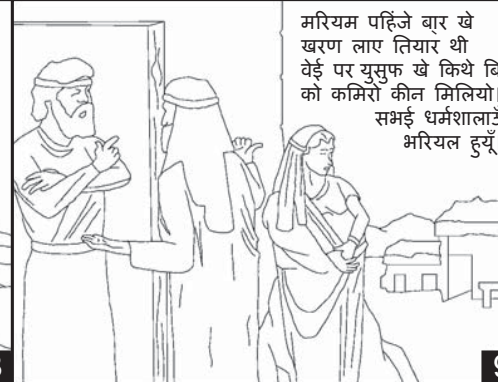 मरियम पहिंजे बा॒र खे
खरण लाए तियार थी
वेई पर युसुफ खे किथे बि
को कमिरो कीन मिलियो।
सभई धर्मशालाउँ
भरियल हुयूँ